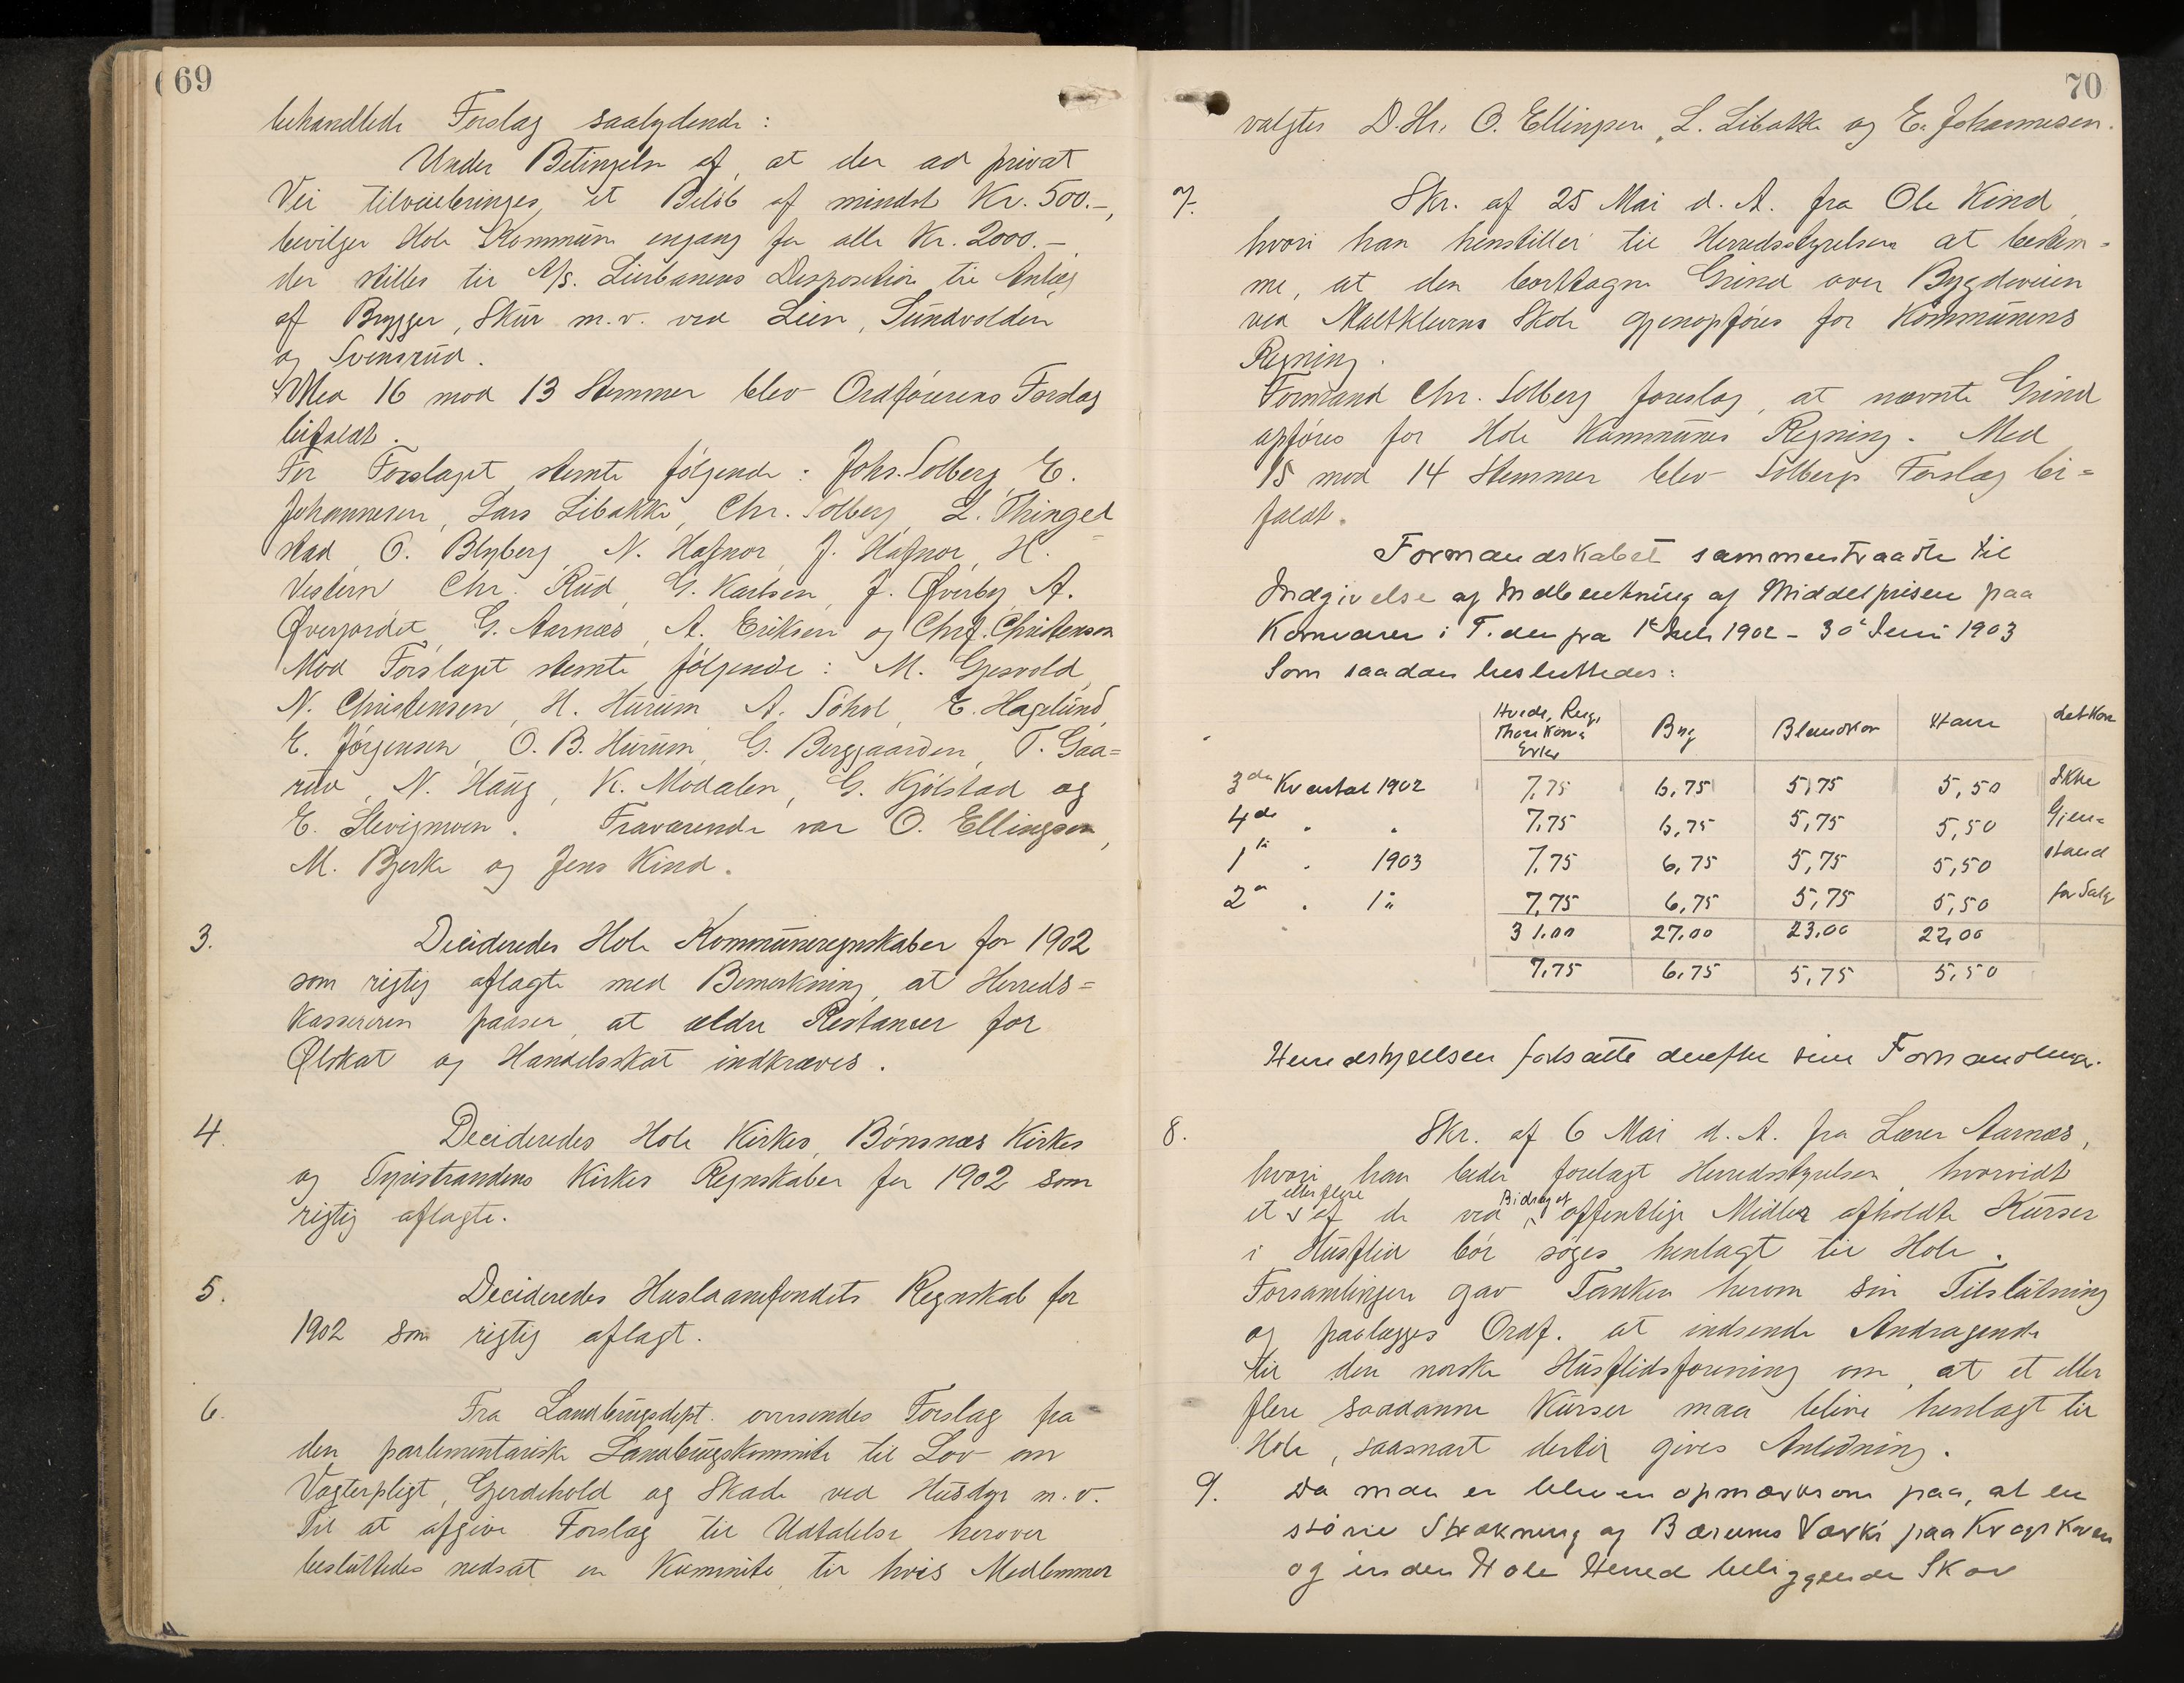 69
behandlede Forslag saalydende:
Under Betingelse af, at der ad privat
Vei tilveiebringes et Beløb af mindst Kr. 500.-,
bevilger Hole Kommune engang for alle Kr. 2000.-
der stilles til A/S. Lierbanens Disposition til Anlæg
af Brygger, Skur m.v. ved Lien, Sundvolden
og Svensrud.
Med 16 mod 13 Stemmer blev Ordførerens Forslag
bifaldt.
For Forslaget stemte følgende: Johs. Solberg, E.
Johannesen, Lars Libakke, Chr. Solberg, L. Thingel
stad, O. Blyberg, N. Hafnor, J. Hafnor, H.
Vestern Chr. Rud, G. Karlsen, J. Øverby A.
Øverjordet, G. Aarnæs, A. Eriksen og Chrf. Christensen
Mod Forslaget stemte følgende: M. Gjesvold,
N. Christensen, H. Hurum A. Søhol, E. Hagelund,
E. Jørgensen, O. B. Hurum, G. Berggaarden, T. Gaa=
rud, N. Haug, K. Modalen, G. Kjølstad og
E. Slevigmoen. Fraværende var O. Ellingsen,
M. Bjerke og Jens Kind.
3. Decideredes Hole Kommuneregnskaber for 1902
som rigtig aflagte med Bemerkning, at Herreds=
kassereren paaser, at ældre Restancer for
Ølskat og Handelsskat indkræves.
4. Decideredes Hole Kirkes, Bønsnæs Kirkes
og Tyristrandens Kirkes Regnskaber for 1902 som
rigtig aflagte.
5. Decideredes Huslaanefondets Regnskab for
1902 som rigtig aflagt.
6. Fra Landbrugsdept. oversendes Forslag fra
den parlementariske Landbrugskommite til Lov om
Vogterpligt, Gjerdehold og Skade ved Husdyr m.v.
Til at afgive Forslag til Udtalelse herover
besluttedes nedsat en Kommite, til hvis Medlemmer
70
valgtes D.Hr. O. Ellingsen, L. Libakke og E. Johannesen.
7. Skr. af 25 Mai d. A. fra Ole Kind,
hvori han henstiller til Herredsstyrelsen at bestem=
me, at den borttagne Grind over Bygdeveien
ved Mælkklevens Skole gjenopføres for Kommunens
Regning.
Formand Chr. Solberg foreslog, at nævnte Grind
opføres for Hole Kommunes Regning. Med
15 mod 14 Stemmer blev Solbergs Forslag bi=
faldt.
Formandskabet sammentraadte til
Indgivelse af Indberetning af Middelprisen paa
Kornvarer i T. den fra 1ste Juli 1902 - 30te Juni 1903
Som saadan besluttedes:
Hvede, Rug, Byg Blandkor Havre
Erter
3die Kvartal 1902 7,75 6,75 5,75 5,50 Ikke
4de " " 7,75 6,75 5,75 5,50 Gjen=
1ste " 1903 7,75 6,75 5,75 5,50 stand
7,75 6,75 5,75 5,50 for Salg
31.00 27.00 23.00 22,00
7,75 6,75 5,75 5,50
Herredsstyrelsen fortsatte derefter sine Forhandlinger.
8. Skr. af 6 Mai d. A. fra Lærer Aarnæs,
hvori han beder forelagt Herredsstyrelsen, hvorvidt
et eller flere af de ved Bidrag af offentlige Midler afholdte Kurser
i Husflid bør søges henlagt til Hole.
Forsamlingen gav Tanken herom sin Tilslutning
og paalægges Ordf. at indsende Andragende
til den norske Husflidsforening om, at et eller
flere saadanne Kurser maa blive henlagt til
Hole, saasnart dertil gives Anledning.
9. Da man er bleven opmærksom paa, at en
større Strækning af Bærums Værks paa Krogskoven
og inden Hole Herred beliggende Skov